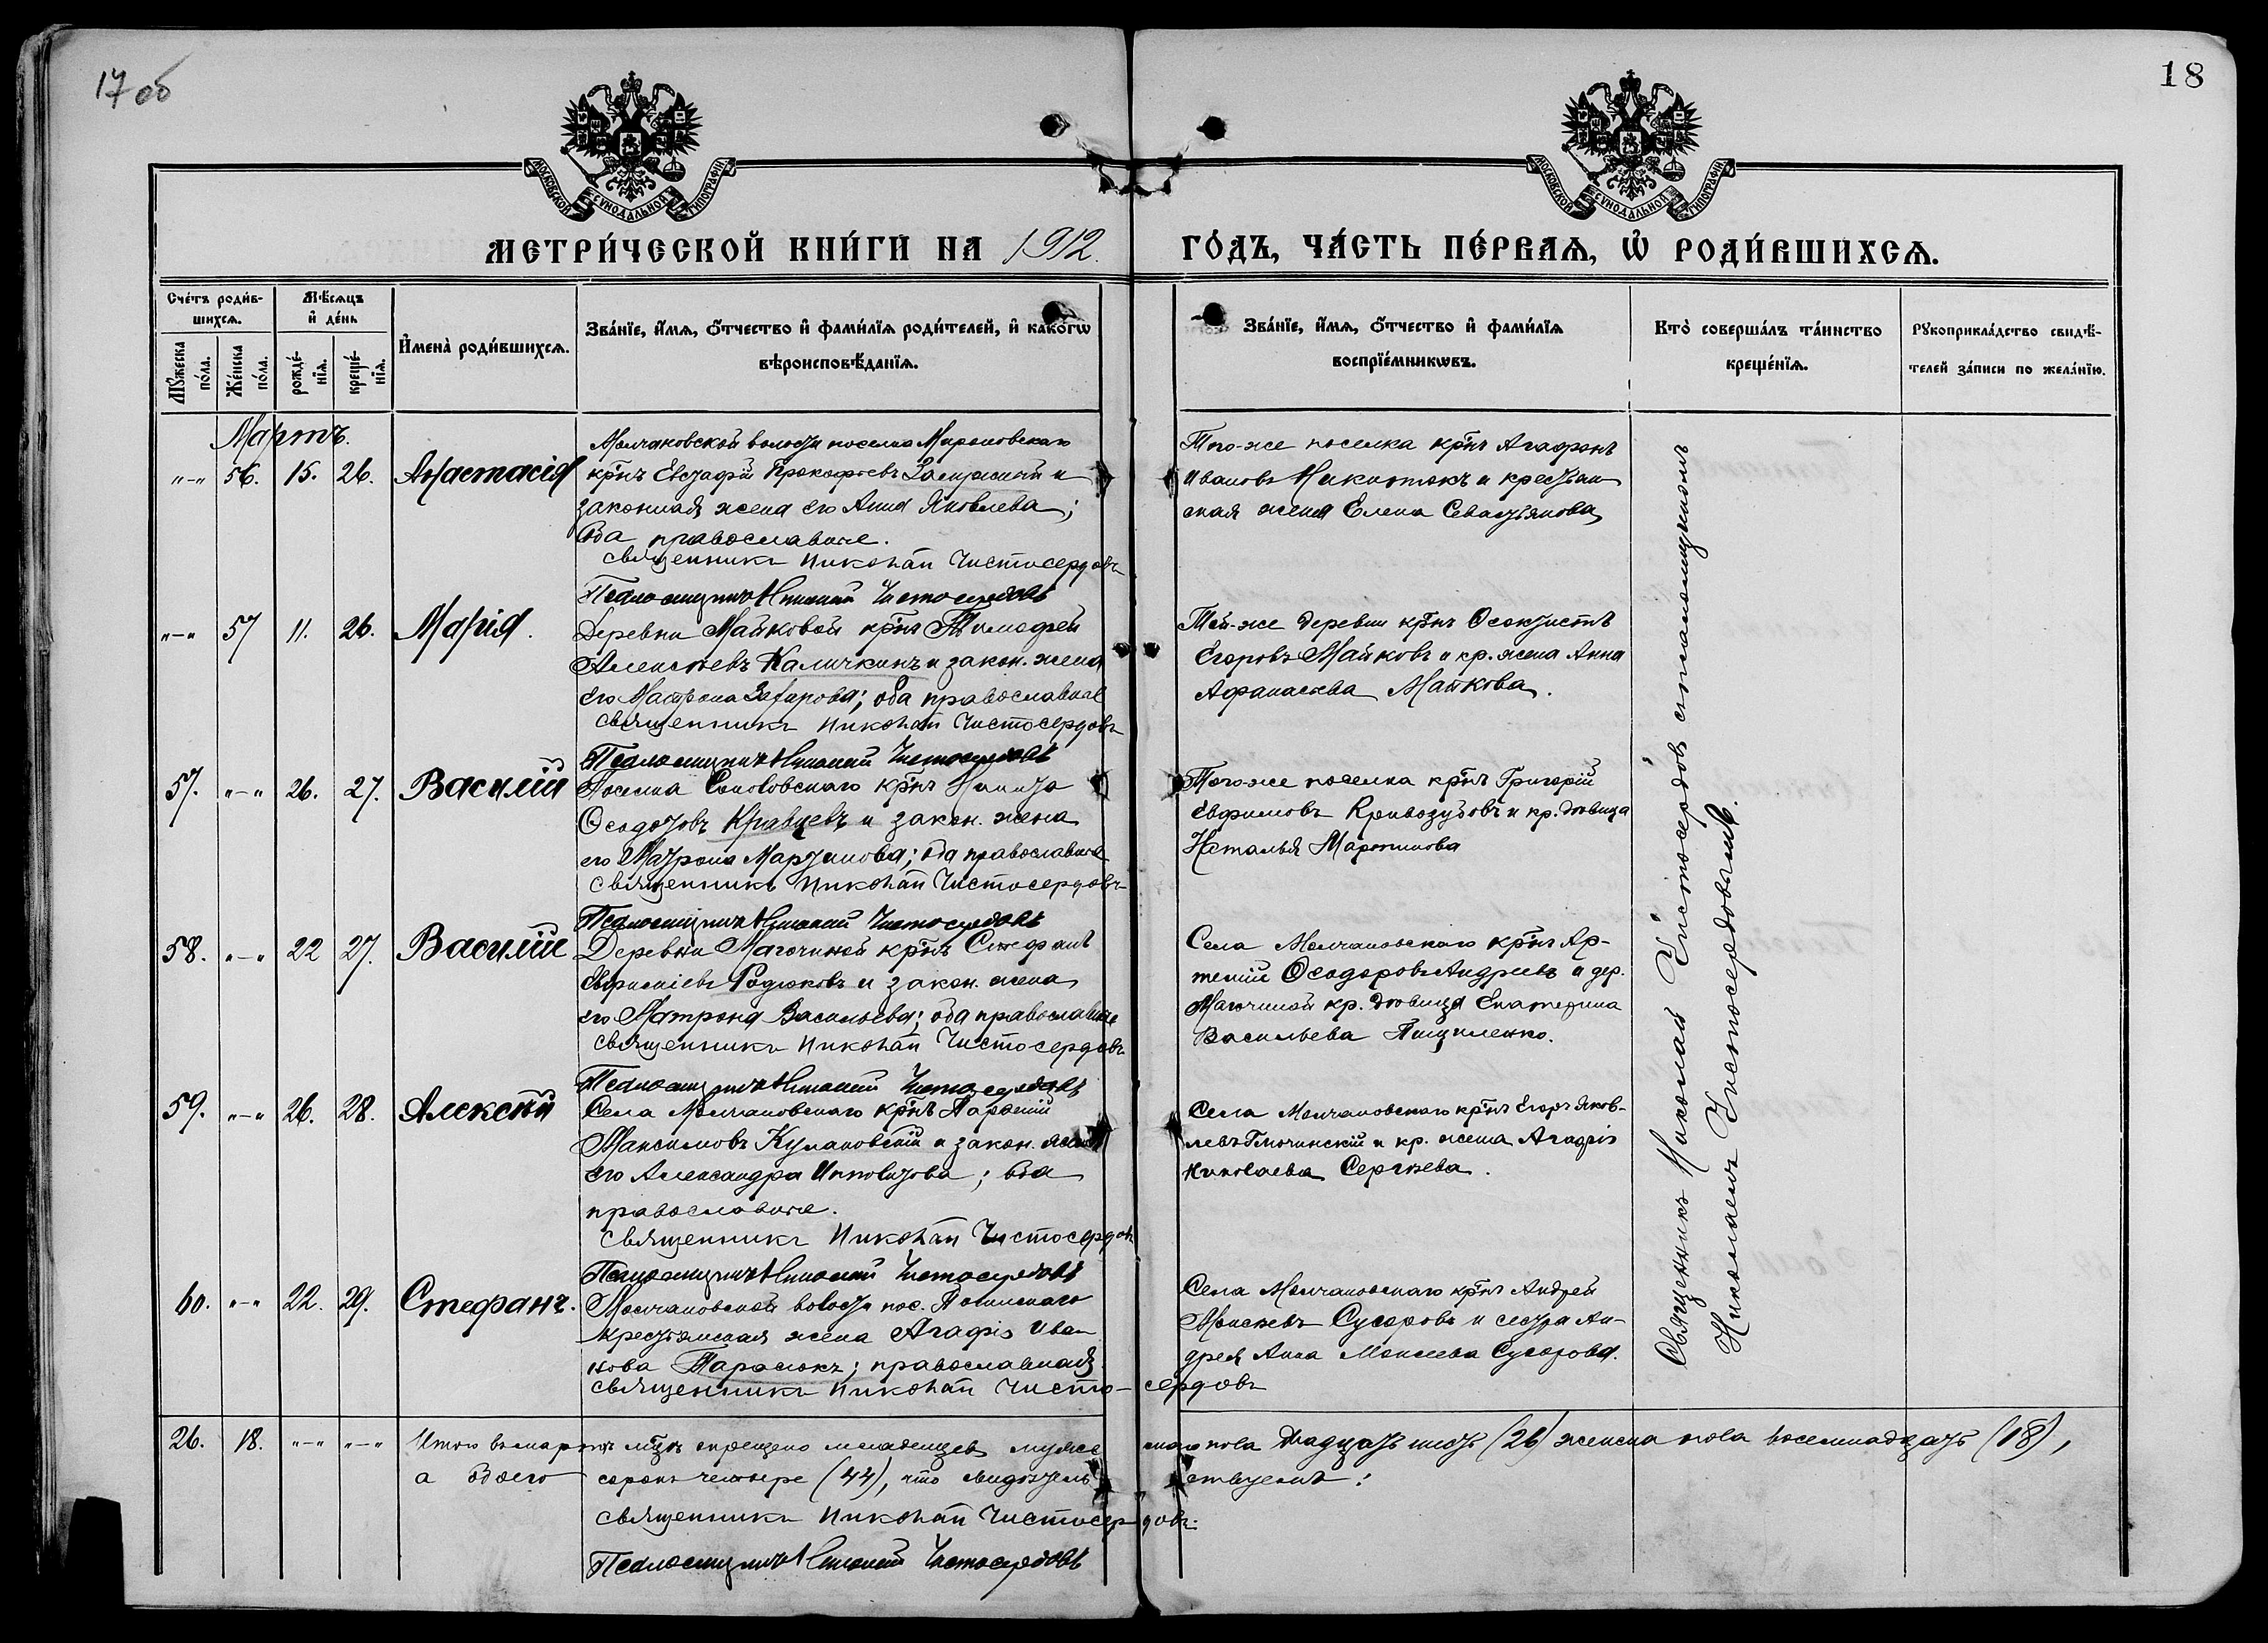 17 об
18
МОСКОВСКОЙ СѴНОДАЛЬНОЙ ТИПОГРАФІИ
МОСКОВСКОЙ СѴНОДАЛЬНОЙ ТИПОГРАФІИ
МЕТРИ́ЧЕСКОЙ КНИ́ГИ НА 1912. ГО́ДЪ, ЧА́СТЬ ПЕ́РВАѦ, Ѡ҆ РОДИ́ВШИХСѦ.
Сче́тъ роди́в-
шихсѧ.
Мѣ́сѧцъ
и҆ де́нь
Мꙋ́жеска
по́ла.
Же́нска
по́ла.
рожде́-
нїѧ.
креще́-
нїѧ.
И҆мена̀ роди́вшихсѧ.
Зва́нїе, и҆́мѧ, ѻ҆́тчество и҆ фами́лїѧ роди́телей, и҆ како́гѡ
вѣроисповѣ́данїѧ.
Зва́нїе, и҆́мѧ, ѻ҆́тчество и҆ фами́лїѧ
воспрїе́мникѡвъ.
Кто̀ соверша́лъ та́инство
креще́нїѧ.
Рꙋкоприкла́дство свидѣ́-
телей за́писи по жела́нїю.
Мартъ.
"-" 56. 15. 26. Анастасія
Молчановской волости поселка Мироновскаго
крнъ Евстафій Прокофьевъ и
законная жена его Анна Яковлева;
Оба православные.
Священникъ Николай Чистосердовъ
Псаломщикъ Николай Чистосердовъ
Того-же поселка крнъ Агафонъ
Ивановъ Никитюкъ и крестьян
ская жена Елена Севастьянова
"-" 57 11. 26. Марія.
Деревни Майковой крнъ Тимофей
Алексѣевъ Каличкинъ и закон. жена
его Матрона Захарова; оба православные
Священникъ Николай Чистосердовъ
Псаломщикъ Николай Чистосердовъ
Той-же деревни крнъ Ѳеоктистъ
Егоровъ Майковъ и кр. жена Анна
Афанасьева Майкова.
57. "-" 26. 27. Василій
Поселка Соколовскаго крнъ Никита
Ѳедотовъ Кравцевъ и закон. жена
его Матрона Мартинова; оба православные
Священникъ Николай Чистосердовъ
Псаломщикъ Николай Чистосердовъ
Того-же поселка крнъ Григорій
Евфимовъ Кривозубовъ и кр. дѣвица
Наталья Мартинова
58. "-" 22 27. Василій
Деревни Магочиной крнъ Стефанъ
Родюковъ и закон. жена
его Матрона Васильева; оба православные
Священникъ Николай Чистосердовъ
Псаломщикъ Николай Чистосердовъ
Села Молчановскаго крнъ Ар-
темій Ѳеодоровъ Андреевъ и дер.
Магочиной кр. дѣвица Екатерина
Васильева Пищиленко.
59. "-" 26. 28. Алексѣй
Села Молчановскаго крнъ Парфеній
Максимовъ Кулаковскій и закон. жена
его Александра Ипполитова; оба
православные.
Священникъ Николай Чистосердовъ
Псаломщикъ Николай Чистосердовъ
Села Молчановскаго крнъ Егоръ Яков-
левъ и кр. жена Агафія
Николаева Сергѣева.
60. "-" 22. 29. Стефанъ.
Молчановской волости пос.
крестьянская жена Агафія Ива-
нова Тарасюкъ; православная
Священникъ Николай Чисто-сердовъ
Села Молчановскаго крнъ Андрей
Моисеевъ Сусоровъ и сестра Ан-
дрея Анна Моисеева Сусорова.
Священникъ Николай Чистосердовъ съ псаломщикомъ
Николаемъ Чистосердовымъ.
26. 18. "-" "-" Итого въ мартѣ мцѣ крещено младенцевъ мужескаго пола двадцать шесть (26) женска пола восемнадцать (18),
а обоего сорокъ четыре (44), что свидѣтельствуемъ:
Священникъ Николай Чистосердовъ.
Псаломщикъ Николай Чистосердовъ